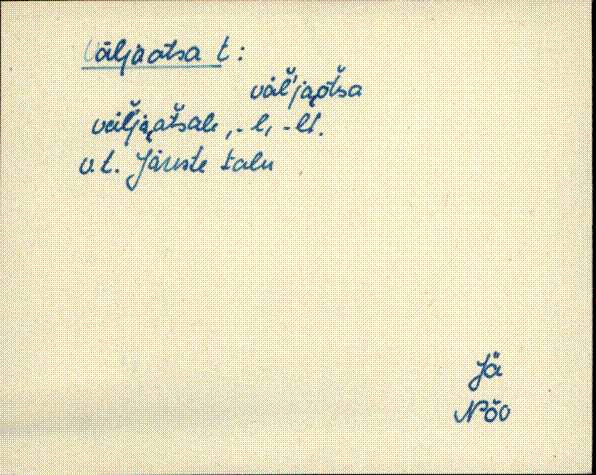 Väljaotsa t:
väľja͔oťsa
väľja͔oťsale, -l, -lt.
v.t. Järuste talu
Jä
Nõo